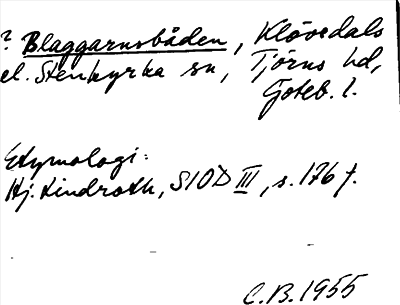 ? Blaggarnsbåden, Klövedals
el. Stenkyrka sn, Tjörns hd,
Göteb. l.
Etymologi:
Hj. Lindroth, SIOD III, s. 176 f.
C.B. 1955